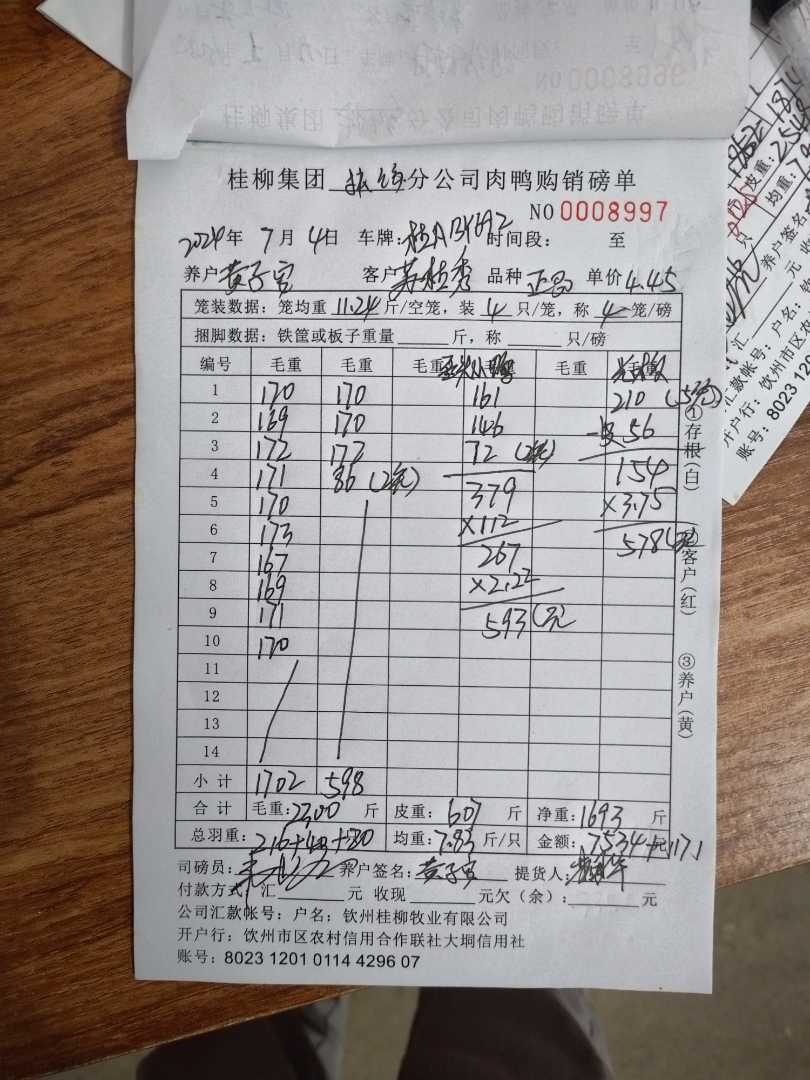 桂柳集团 分公司肉鸭购销磅单
NO 0008997
2024年 7月 4日 车牌: 时间段: 至
养户 黄子官 客户 品种 单价 4.45
笼装数据: 笼均重 11.24 斤/空笼, 装 4 只/笼, 称 4 笼/磅
捆脚数据: 铁筐或板子重量 斤, 称 只/磅
编号 毛重 毛重 毛重 毛重 毛重
1 170 170 161 210
2 169 170 146 56
3 172 172 72 154
4 171 86 379 ×3.75
5 170 578
6 173
7 167 267
8 169 ×2.22
9 171 593(元
10 170
11
12
13
14
小计 1702 598
合计 毛重: 2300 斤 皮重: 607 斤 净重: 1693 斤
总羽重: 均重: 7.83 斤/只 金额: 7534 元
司磅员: 养户签名: 黄子官 提货人:
付款方式: 汇 元 收现 元欠(余): 元
公司汇款帐号: 户名: 钦州桂柳牧业有限公司
开户行: 钦州市区农村信用合作联社大垌信用社
账号: 8023 1201 0114 4296 07
①存根(白)
客户(红)
③养户(黄)
皮重:
均重:
养户签名
汇 元
汇款帐号: 户名:
开户行: 钦州市区
账号: 8023 120